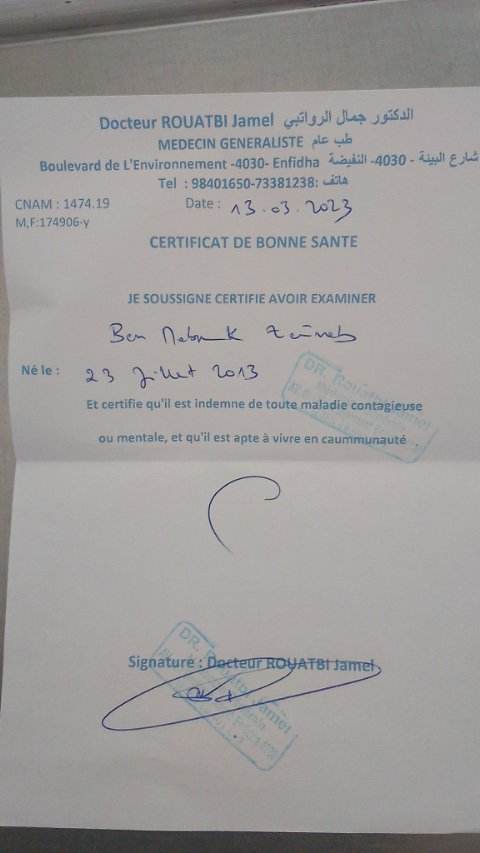 Docteur ROUATBI Jamel الدكتور جمال الرواتبي
MEDECIN GENERALISTE طب عام
Boulevard de L'Environnement -4030- Enfidha شارع البيئة - 4030- النفيضة
Tel : 98401650-73381238: هاتف
CNAM : 1474.19
Date : 13.03.2023
M,F:174906-y
CERTIFICAT DE BONNE SANTE
JE SOUSSIGNE CERTIFIE AVOIR EXAMINER
Ben
Né le : 23 Juillet 2013
DR. Rouatbi Jamel
Et certifie qu'il est indemne de toute maladie contagieuse
ou mentale, et qu'il est apte à vivre en caummunauté .
Signature : Docteur ROUATBI Jamel
DR. Rouatbi Jamel